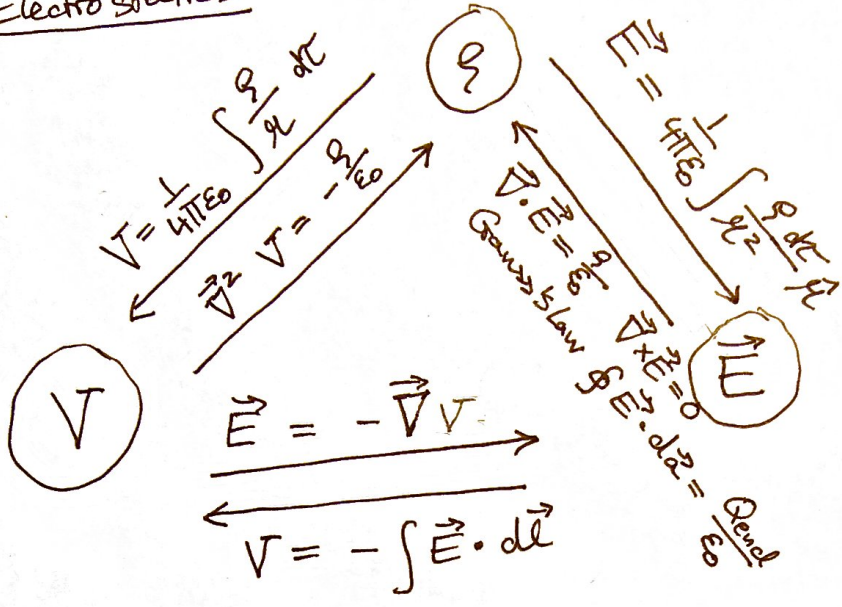 Electrostatics
ρ
V = 1/4πε₀ ∫ ρ/r dτ
∇⃗² V = - ρ/ε₀
E⃗ = 1/4πε₀ ∫ ρ dτ/r² r̂
∇⃗·E⃗ = ρ/ε₀ ∇⃗×E⃗ = 0
Gauss's Law ∮ E⃗·da⃗ = Qencl/ε₀
V
E⃗
E⃗ = - ∇⃗ V
V = - ∫ E⃗ · dl⃗